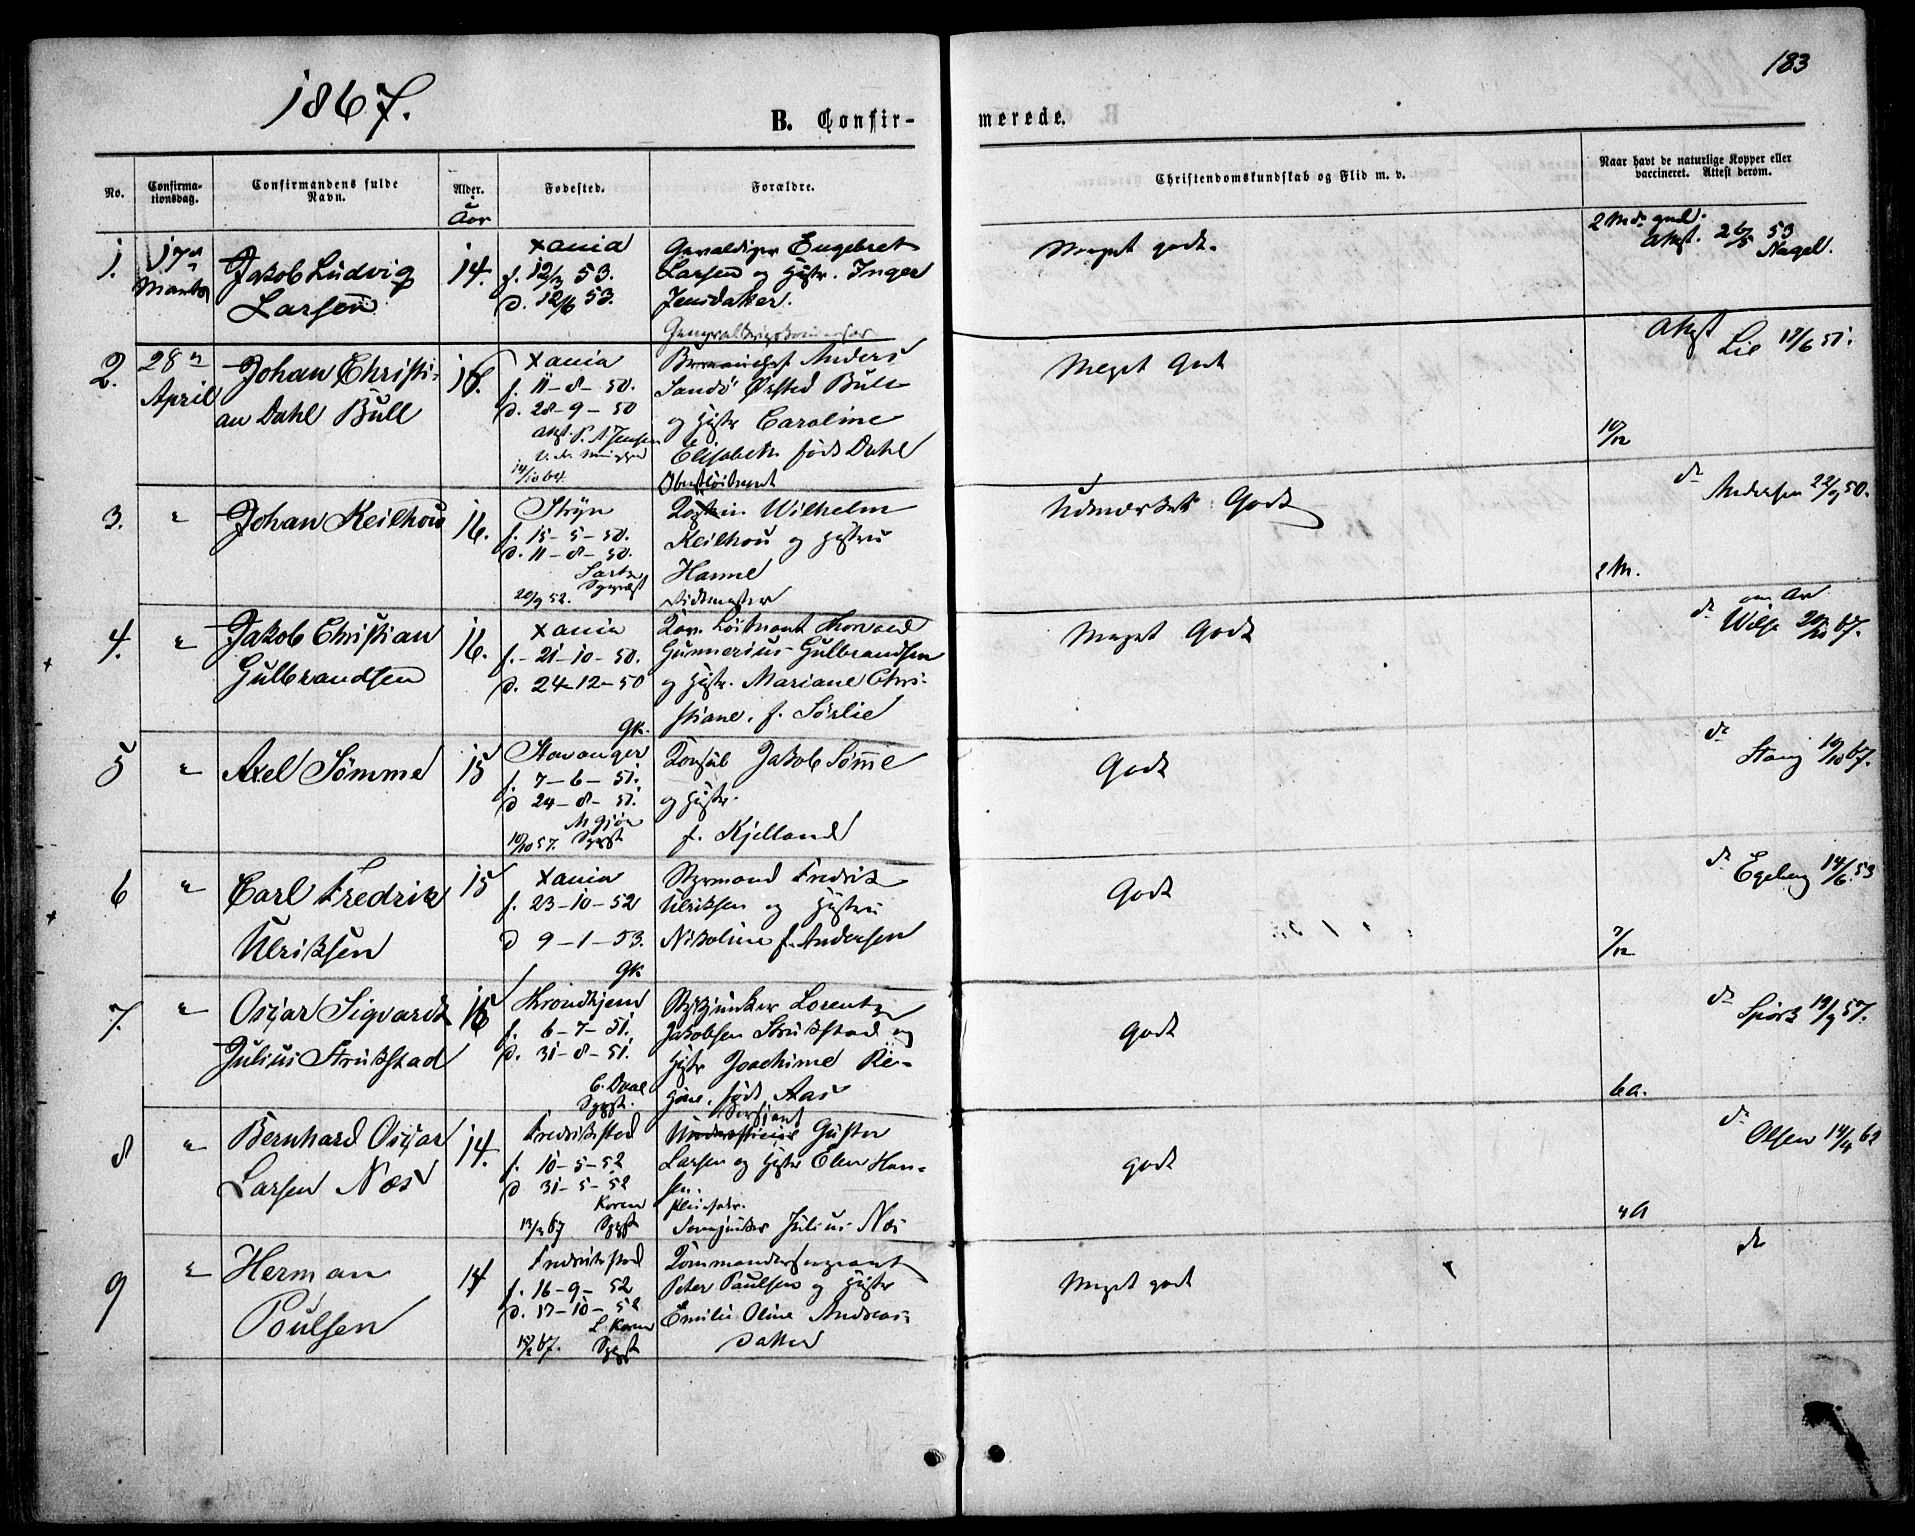 1867.
183
B. Confir-
merede.
No.
Confirma-
tionsdag.
Confirmandens fulde
Navn.
Alder.
Aar
Fødested.
Forældre.
Christendomskundskab og Flid m. v.
Naar havt de naturlige Kopper eller
vaccineret. Attest derom.
1.
17de
Marts
Jakob Ludvig
Larsen
14.
Xania
f. 12/3 53.
d. 12/6 53.
Gevaldiger Engebret
Larsen og Hustr. Inger
Jensdatter.
Meget godt.
Attst. 26/5 53
Nagel.
2.
28de
April
Johan Christi-
an Dahl Bull
16.
Xania
f. 11-8-50.
d. 28-9-50
14/10 64.
Generalkrigskommissær
Anders
Sandø Ørsted Bull
og Hustr Caroline
Elisabeth født Dahl
Meget Godt
Attst Lie 17/6 51.
10/12
3.
"
Johan Keilhau
16.
Stryn
f. 15-5-50.
d. 11-8-50.
20/9 52. Sgprst
Oberstløitnant
Wilhelm
Keilhau og Hustru
Hanne
Udmærket Godt
do Andersen 22/9 50.
2 M.
4.
"
Jakob Christian
Gulbrandsen
16.
Xania
f. 21-10-50.
d. 24-12-50
Gk.
Ridtmester
Kav. Løitnant Thorvald
Gunnerius Gulbrandsen
og Hustr. Mariane Chri-
stiane, f. Sørlie
Meget Godt
do Wilse 20/10 67.
5
"
Axel Sömme
15
Stavanger
f. 7-6-51.
d 24-8-51.
10/10 57. Sgpst
Konsul Jakob Sømme
og Hustr.
f. Kjelland
Godt
do Stang 19/10 67.
6
"
Carl Fredrik
Ulriksen
15
Xania
f. 23-10-52
d 9-1-53.
Gk
Styrmand Fredrik
Ulriksen og Hustru
Nikoline f. Andersen
Godt
do Egeberg 14/6 53
7/12
7.
"
Oscar Sigvardt
Julius Strukstad
Throndhjem
f. 6-7-51.
d. 31-8-51.
Sgpst.
Stykjunker Lorentz
Jakobsen Strukstad og
Hustr Joachime Re-
gine, født Aas
godt
do Spørk 19/9 57.
6 a.
8
"
Bernhard Oscar
Larsen Næs
14.
Fredrikstad
f. 10-5-52
d 31-5-52
Koren
13/2 67 Sgpst
Sersjant
Underofficier Gustav
Larsen og Hustr Elen Han-
sen.
Pleiefader.
Julius Næs
godt
do Olsen 14/4 62
9
"
Herman
Poulsen
14
Fredrikstad
f. 16-9-52
d. 17-10-52
L. Koren
Sgpst
Kommandersergeant
Peter Paulsen og Hustr
Emilie Oline Andreas-
datter
Meget godt
do